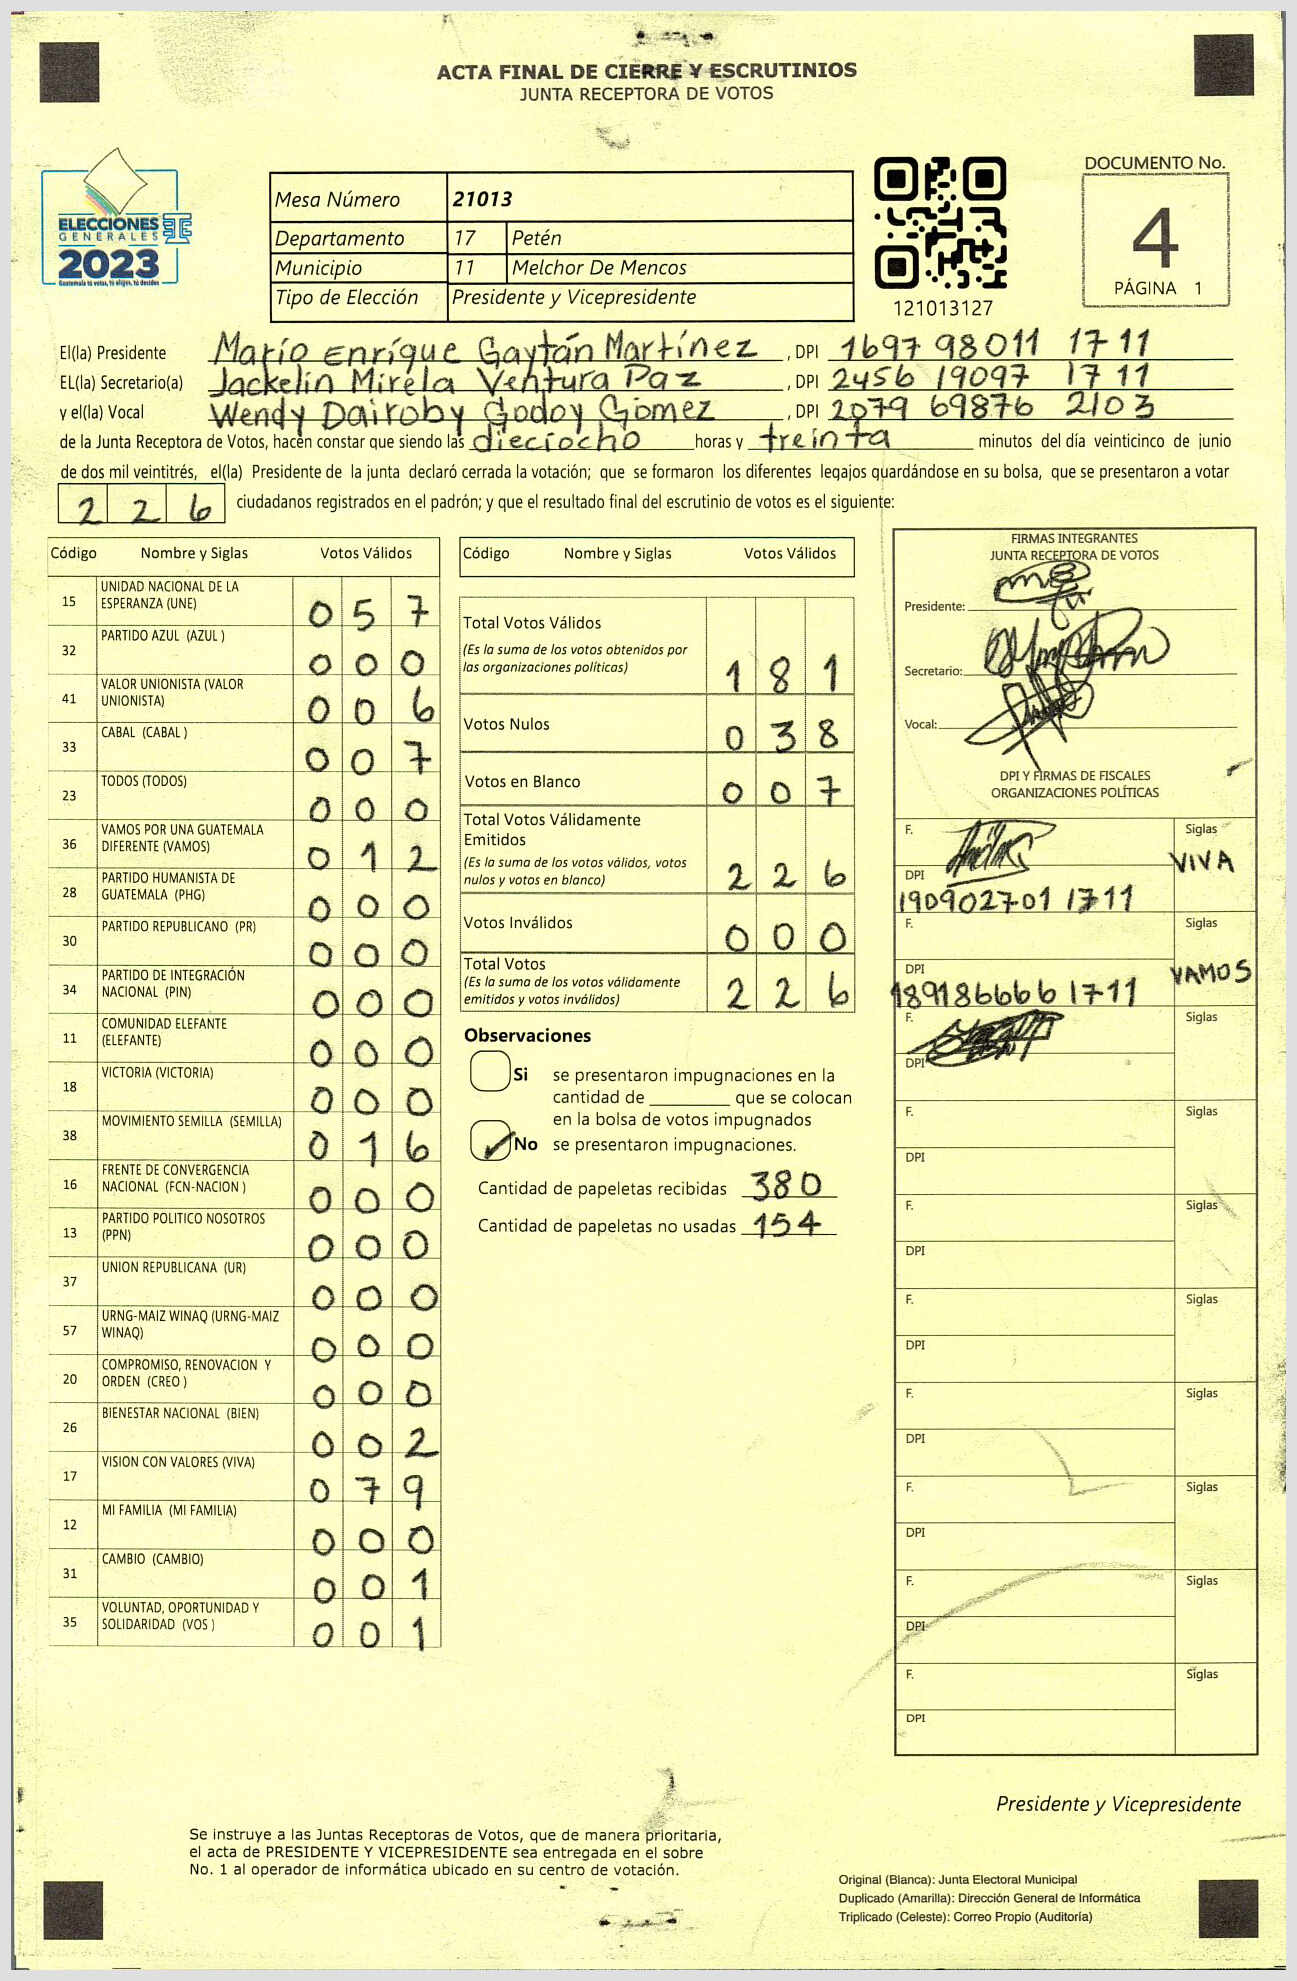 ACTA FINAL DE CIERRE Y ESCRUTINIOS
JUNTA RECEPTORA DE VOTOS
ELECCIONES
GENERALES
2023
Guatemala tú votas, tú eliges, tú decides
Mesa Número 21013
Departamento 17 Petén
Municipio 11 Melchor De Mencos
Tipo de Elección Presidente y Vicepresidente
121013127
DOCUMENTO No.
4
PÁGINA 1
El(la) Presidente Mario Enríque Gaytán Martínez , DPI 1697 98011 1711
EL(la) Secretario(a) Jackelin Mirela Ventura Paz , DPI 2456 19097 1711
y el(la) Vocal Wendy Dairoby Godoy Gómez , DPI 2079 69876 2103
de la Junta Receptora de Votos, hacen constar que siendo las dieciocho horas y treinta minutos del día veinticinco de junio
de dos mil veintitrés, el(la) Presidente de la junta declaró cerrada la votación; que se formaron los diferentes legajos guardándose en su bolsa, que se presentaron a votar
226 ciudadanos registrados en el padrón; y que el resultado final del escrutinio de votos es el siguiente:
Código Nombre y Siglas Votos Válidos
15 UNIDAD NACIONAL DE LA ESPERANZA (UNE) 057
32 PARTIDO AZUL (AZUL ) 000
41 VALOR UNIONISTA (VALOR UNIONISTA) 006
33 CABAL (CABAL ) 007
23 TODOS (TODOS) 000
36 VAMOS POR UNA GUATEMALA DIFERENTE (VAMOS) 012
28 PARTIDO HUMANISTA DE GUATEMALA (PHG) 000
30 PARTIDO REPUBLICANO (PR) 000
34 PARTIDO DE INTEGRACIÓN NACIONAL (PIN) 000
11 COMUNIDAD ELEFANTE (ELEFANTE) 000
18 VICTORIA (VICTORIA) 000
38 MOVIMIENTO SEMILLA (SEMILLA) 016
16 FRENTE DE CONVERGENCIA NACIONAL (FCN-NACION ) 000
13 PARTIDO POLITICO NOSOTROS (PPN) 000
37 UNION REPUBLICANA (UR) 000
57 URNG-MAIZ WINAQ (URNG-MAIZ WINAQ) 000
20 COMPROMISO, RENOVACION Y ORDEN (CREO ) 000
26 BIENESTAR NACIONAL (BIEN) 002
17 VISION CON VALORES (VIVA) 079
12 MI FAMILIA (MI FAMILIA) 000
31 CAMBIO (CAMBIO) 001
35 VOLUNTAD, OPORTUNIDAD Y SOLIDARIDAD (VOS ) 001
Código Nombre y Siglas Votos Válidos
Total Votos Válidos
(Es la suma de los votos obtenidos por las organizaciones políticas) 181
Votos Nulos 038
Votos en Blanco 007
Total Votos Válidamente Emitidos
(Es la suma de los votos válidos, votos nulos y votos en blanco) 226
Votos Inválidos 000
Total Votos
(Es la suma de los votos válidamente emitidos y votos inválidos) 226
Observaciones
Si se presentaron impugnaciones en la
cantidad de ________ que se colocan
en la bolsa de votos impugnados
No se presentaron impugnaciones.
Cantidad de papeletas recibidas 380
Cantidad de papeletas no usadas 154
FIRMAS INTEGRANTES
JUNTA RECEPTORA DE VOTOS
Presidente:
Secretario:
Vocal:
DPI Y FIRMAS DE FISCALES
ORGANIZACIONES POLÍTICAS
F. Siglas
VIVA
DPI
190902701 1711
F. Siglas
DPI VAMOS
189186666 1711
F. Siglas
DPI
F. Siglas
DPI
F. Siglas
DPI
F. Siglas
DPI
F. Siglas
DPI
F. Siglas
DPI
F. Siglas
DPI
F. Siglas
DPI
Presidente y Vicepresidente
Se instruye a las Juntas Receptoras de Votos, que de manera prioritaria,
el acta de PRESIDENTE Y VICEPRESIDENTE sea entregada en el sobre
No. 1 al operador de informática ubicado en su centro de votación.
Original (Blanca): Junta Electoral Municipal
Duplicado (Amarilla): Dirección General de Informática
Triplicado (Celeste): Correo Propio (Auditoría)